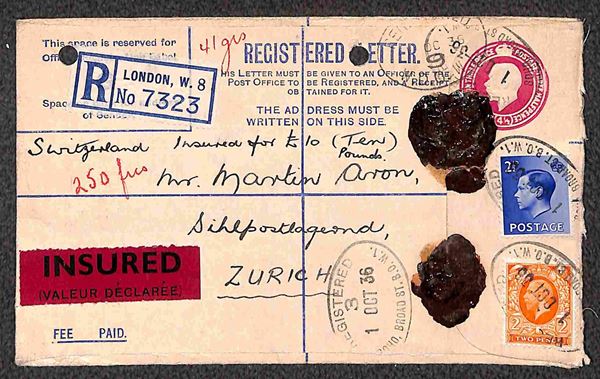 This space is reserved for
41 grs
REGISTERED LETTER.
THIS LETTER MUST BE GIVEN TO AN OFFICER OF THE
POST OFFICE TO BE REGISTERED, AND A RECEIPT
OBTAINED FOR IT.
THE ADDRESS MUST BE
WRITTEN ON THIS SIDE.
R
LONDON, W. 8
No 7323
Switzerland Insured for £10 (Ten)
Pounds.
250 frcs
Mr. Martin Aron,
Sihlpostlagernd,
ZURICH
INSURED
(VALEUR DÉCLARÉE)
FEE PAID.
REGISTERED
3
1 OCT 36
BROAD ST. B.O. W.1.
POSTAGE
2
2
TWO PENCE